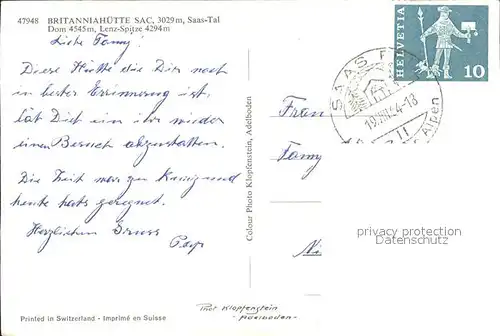 47948 BRITANNIAHÜTTE SAC, 3029 m, Saas-Tal
Dom 4545 m, Lenz-Spitze 4294 m
HELVETIA
10
SAAS
Alpen
Liebe Fanny!
Diese Hütte die Dir noch
in bester Erinnerung ist,
lät Dich ein ihr wieder
einen Besuch abzustatten.
Die Zeit war zu kurz und
heute hats geregnet.
Herzlichen Gruss
Frau
Fanny
Colour Photo Klopfenstein, Adelboden
privacy protection
ansichtskarten-center.de
Phot Klopfenstein
- Adelboden -
Printed in Switzerland - Imprimé en Suisse